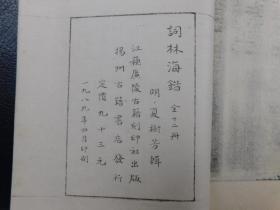 詞林海錯 全十二册
明·夏樹芳輯
江蘇廣陵古籍刻印社出版
揚州古籍書店發行
定價九十三元
一九八九年四月印刷